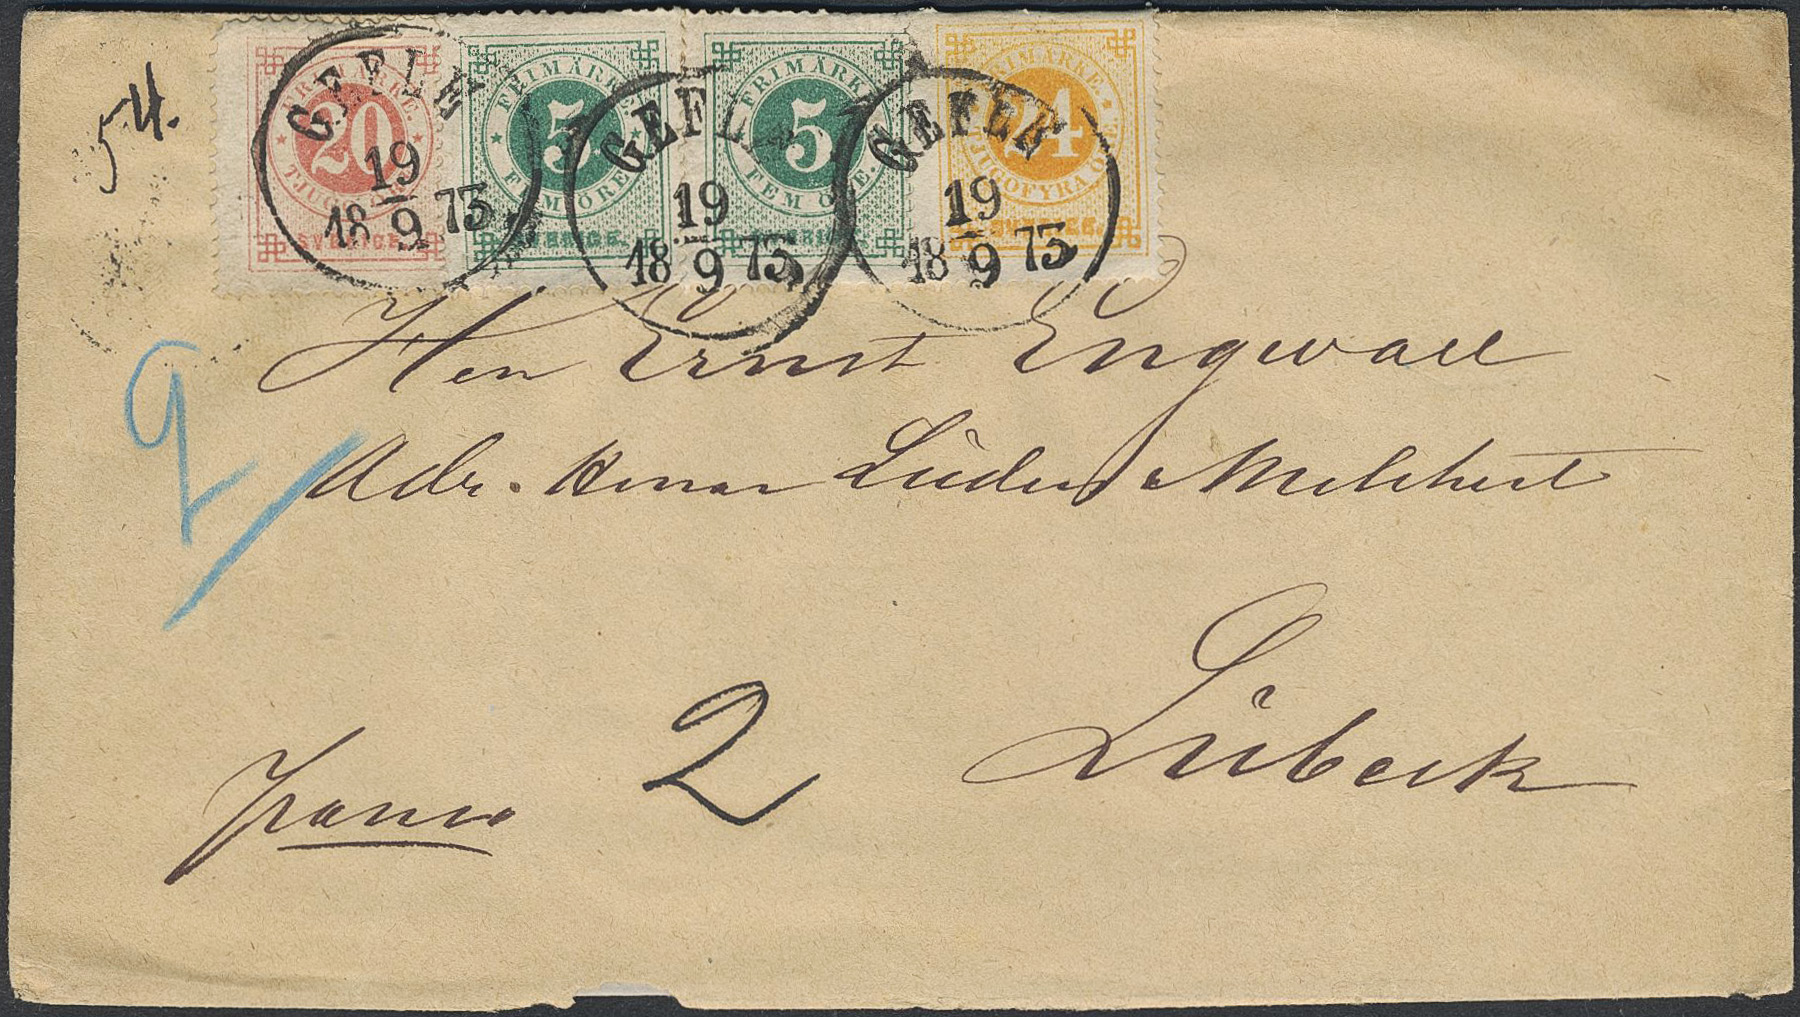 54.
FRIMÄRKE.
20
TJUGO
SVERIGE.
FRIMÄRKE
5
FEM ÖRE
SVERIGE.
FRIMÄRKE
5
FEM ÖRE.
SVERIGE.
FRIMÄRKE.
24
TJUGOFYRA ÖRE.
SVERIGE.
GEFLE
19
18 9 75
GEFLE
19
18 9 75
GEFLE
19
18 9 75
Herr Ernst Engwall
Adr. Herrar Lüders & Melchert
2
Lübeck
franco